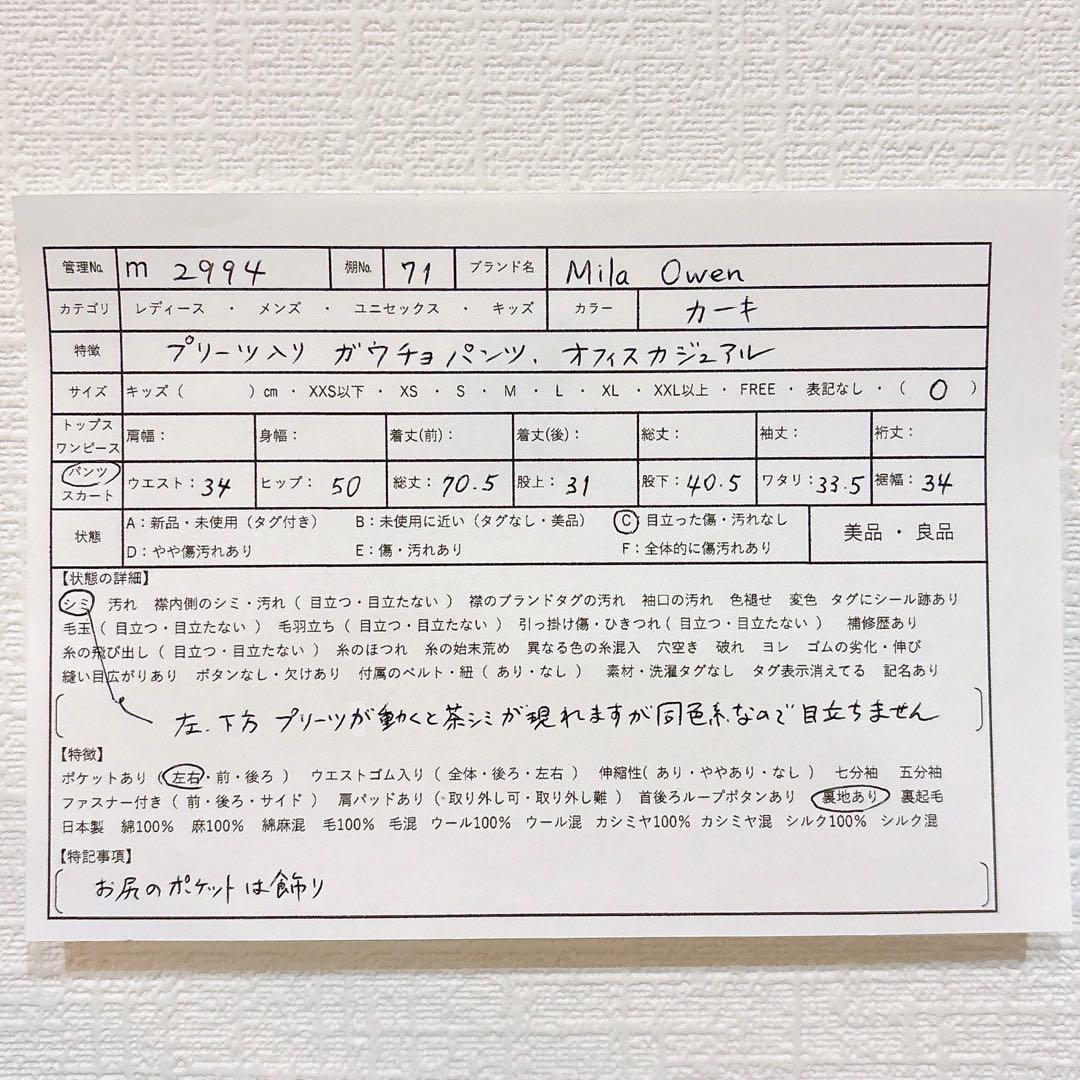 管理No. m 2994 棚No. 71 ブランド名 Mila Owen
カテゴリ レディース ・ メンズ ・ ユニセックス ・ キッズ カラー カーキ
特徴 プリーツ入り ガウチョパンツ、オフィスカジュアル
サイズ キッズ（ ）cm ・ XXS以下 ・ XS ・ S ・ M ・ L ・ XL ・ XXL以上 ・ FREE ・ 表記なし ・（ 0 ）
トップス
ワンピース 肩幅： 身幅： 着丈(前)： 着丈(後)： 総丈： 袖丈： 裄丈：
パンツ
スカート ウエスト：34 ヒップ：50 総丈：70.5 股上：31 股下：40.5 ワタリ：33.5 裾幅：34
状態 A：新品・未使用（タグ付き） B：未使用に近い（タグなし・美品） C：目立った傷・汚れなし 美品 ・ 良品
D：やや傷汚れあり E：傷・汚れあり F：全体的に傷汚れあり
【状態の詳細】
シミ 汚れ 襟内側のシミ・汚れ（ 目立つ・目立たない ） 襟のブランドタグの汚れ 袖口の汚れ 色褪せ 変色 タグにシール跡あり
毛玉（ 目立つ・目立たない ） 毛羽立ち（ 目立つ・目立たない ） 引っ掛け傷・ひきつれ（ 目立つ・目立たない ） 補修歴あり
糸の飛び出し（ 目立つ・目立たない ） 糸のほつれ 糸の始末荒め 異なる色の糸混入 穴空き 破れ ヨレ ゴムの劣化・伸び
縫い目広がりあり ボタンなし・欠けあり 付属のベルト・紐（ あり・なし ） 素材・洗濯タグなし タグ表示消えてる 記名あり
左、下方 プリーツが動くと茶シミが現れますが同色系なので目立ちません
【特徴】
ポケットあり（ 左右・前・後ろ ） ウエストゴム入り（ 全体・後ろ・左右 ） 伸縮性（ あり・ややあり・なし ） 七分袖 五分袖
ファスナー付き（ 前・後ろ・サイド ） 肩パッドあり（ 取り外し可・取り外し難 ） 首後ろループボタンあり 裏地あり 裏起毛
日本製 綿100% 麻100% 綿麻混 毛100% 毛混 ウール100% ウール混 カシミヤ100% カシミヤ混 シルク100% シルク混
【特記事項】
お尻のポケットは飾り